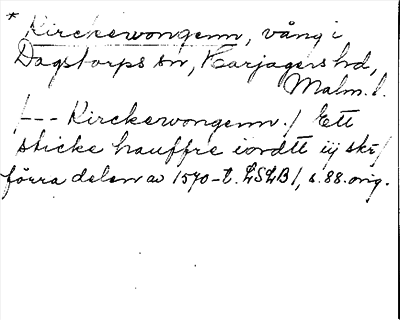 * Kirckewongenn, vång i
Dagstorps sn, Harjagers hd,
Malm. l.
/--- Kirckewongenn./ Ett
sticke hauffre iordtt iij skr/
förra delen av 1570-t. LSLB/, s. 88. orig.